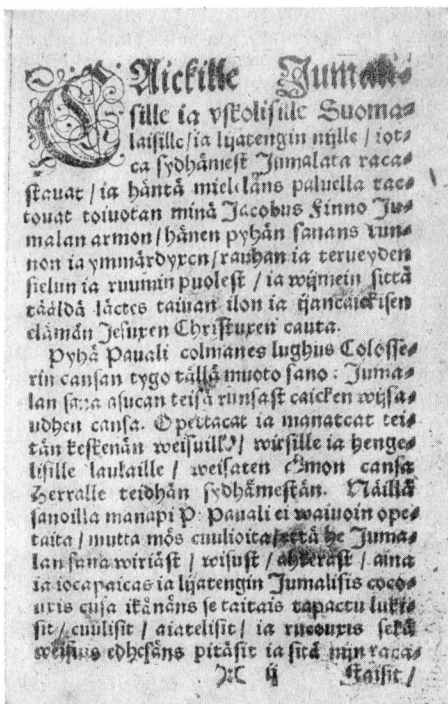 CAickille Jumali⸗
sille ia vskolisille Suoma⸗
laisille / ia lijatengin nijlle / iot⸗
ca sydhämest Jumalata raca⸗
stauat / ia häntä mielelläns paluella rac⸗
touat toiuotan minä Jacobus Finno Ju⸗
malan armon / hänen pyhän sanans tun⸗
non ia ymmärdyxen / rauhan ia terueyden
sielun ia ruumin puolest / ia wijmein sittä
tääldä läctes taiuan ilon ia ijancaickisen
elämän Jesuxen Christuxen cauta.
Pyhä Pauali colmanes lughus Colosse⸗
rin cansan tygö tällä muoto sano: Juma⸗
lan sana asucan teisä runsast caicken wijsa⸗
udhen cansa. Opettacat ia manatcat tei⸗
tän keskenän weisuilla / wirsille ia henge⸗
lisille laulaille / weisaten armon cansa
Herralle teidhän sydhämestän. Näillä
sanoilla manapi P. Pauali ei waiuoin ope⸗
taita / mutta mös cuulioita / että he Juma⸗
lan sana wiriäst / wisust / ahkerast / aina
ia iocapaicas ia lijatengin Jumalisis coco⸗
uxis cusa ikänäns se taitais tapactu lukis⸗
sit / cuulisit / aiatelisit / ia rucouxis sekä
weisuis edhesäns pitäsit ia sitä nijn raca⸗
):( ij staisit /